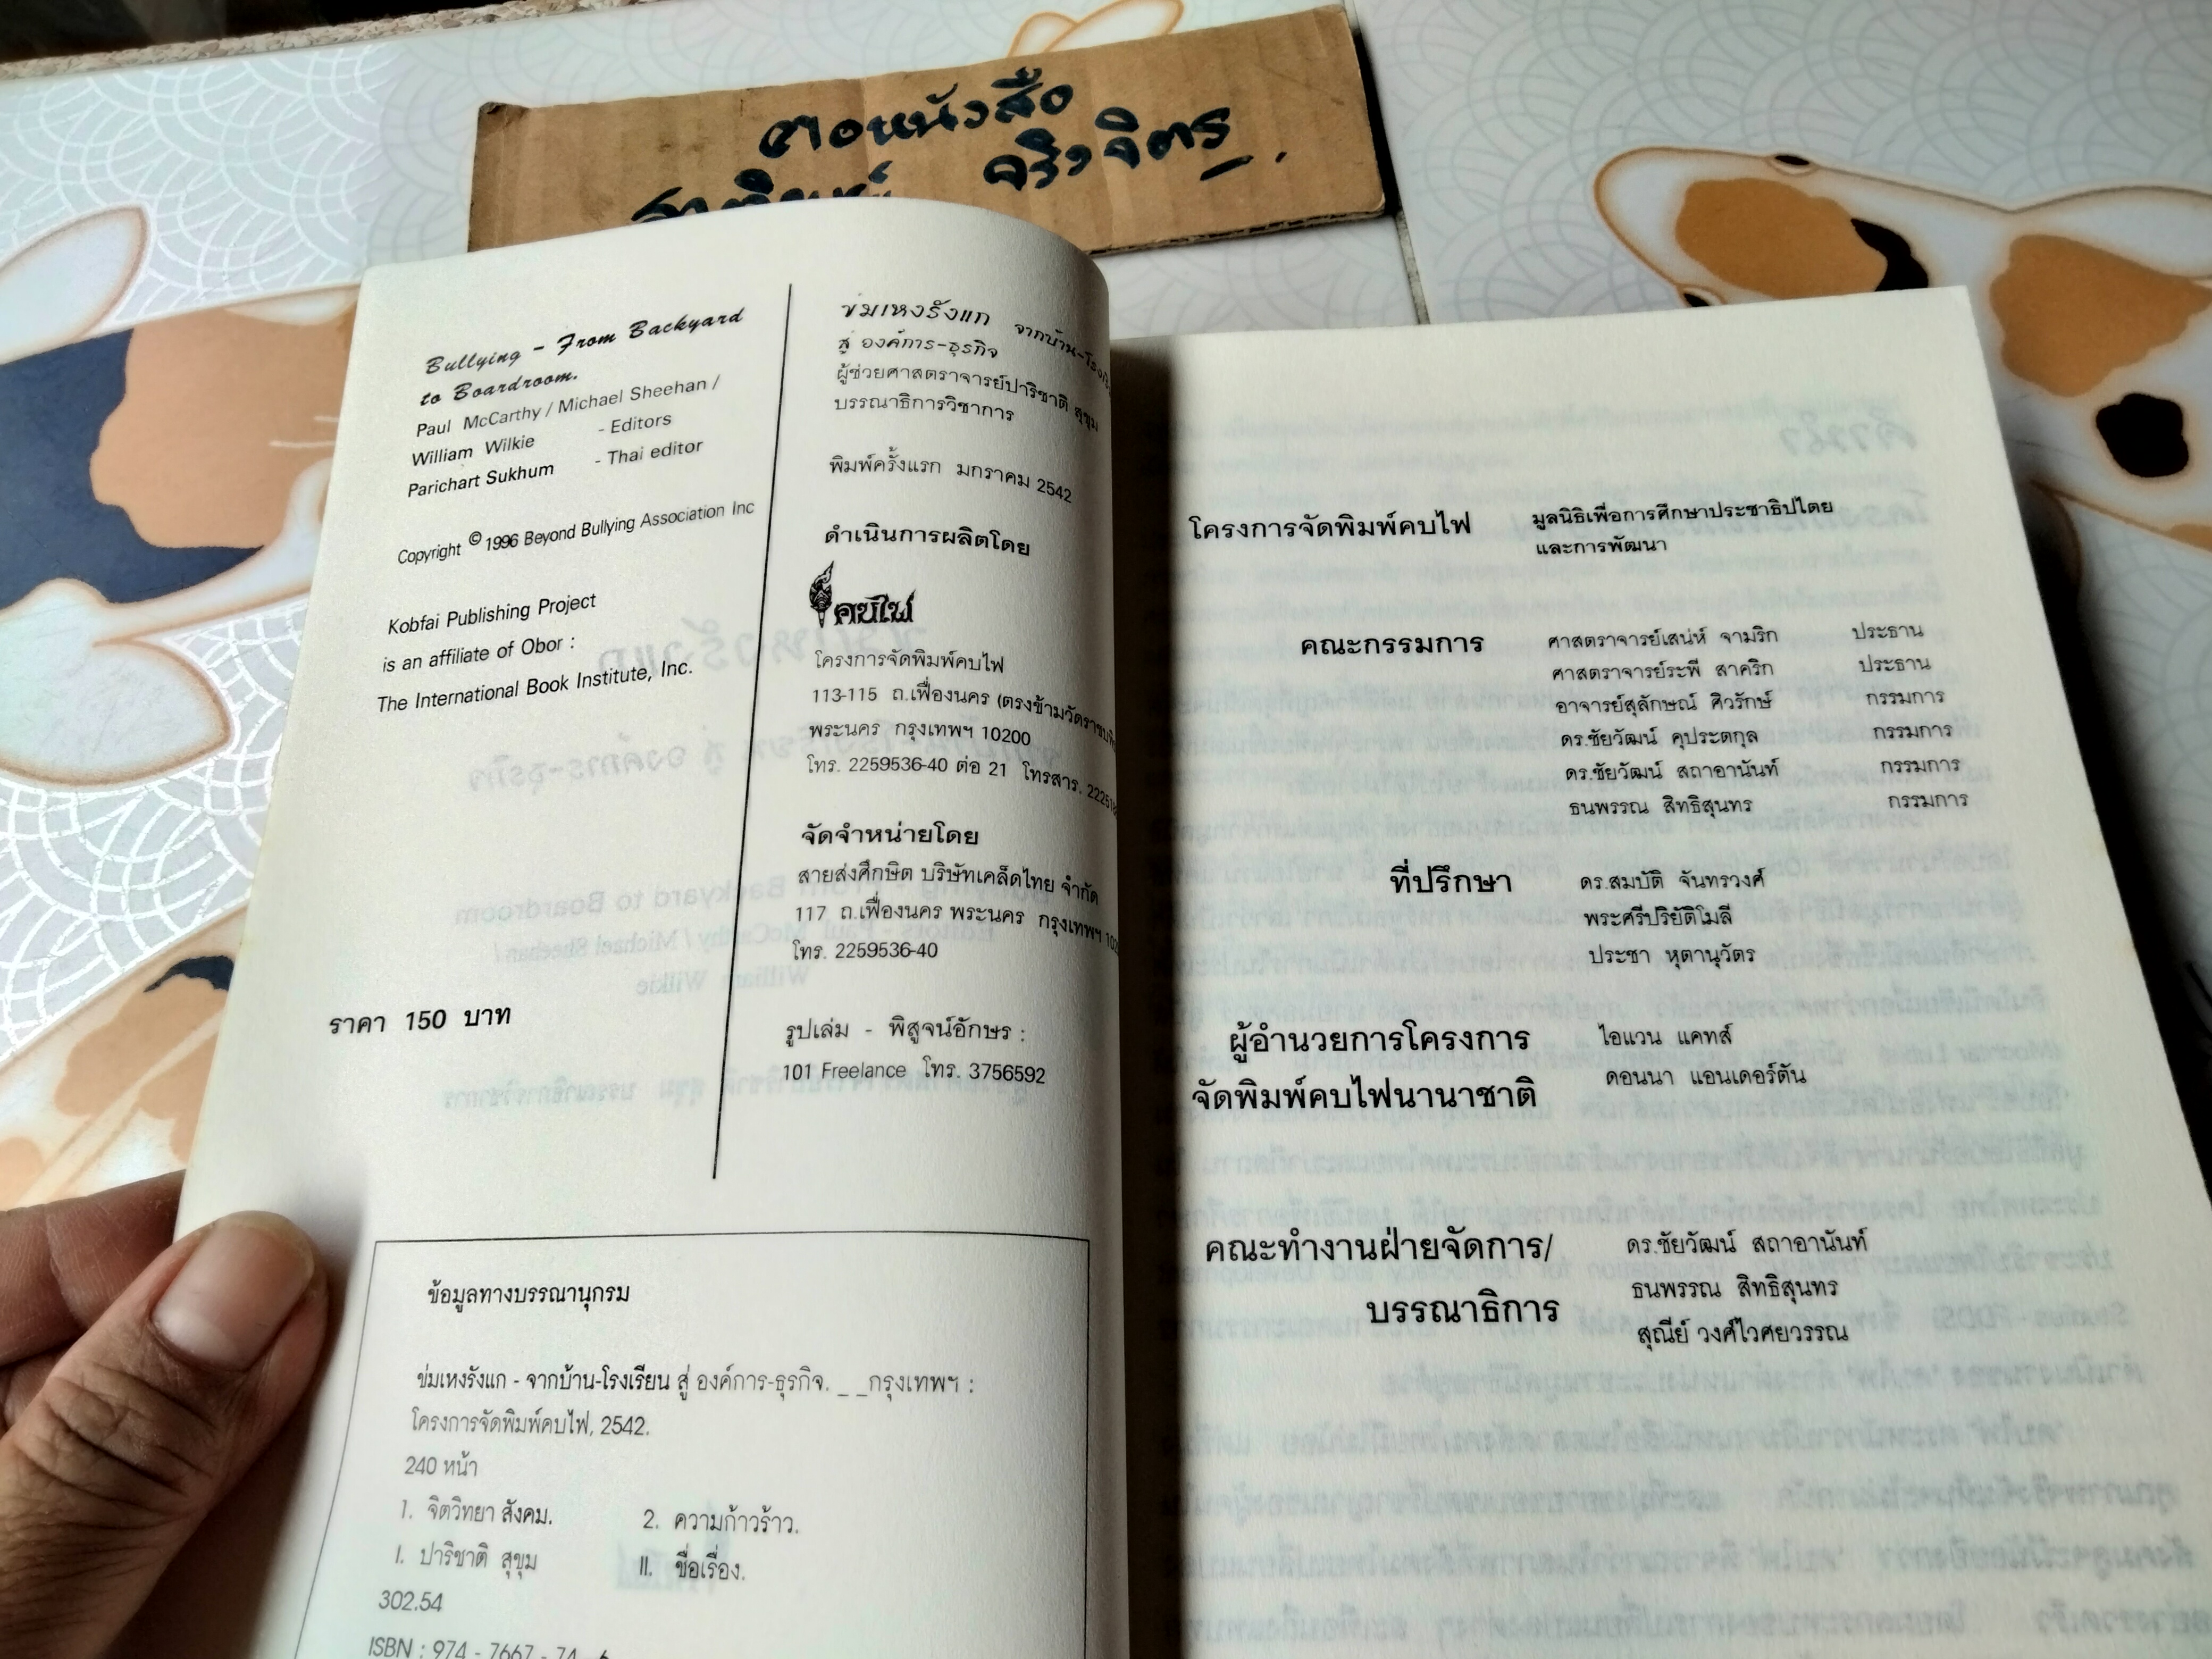 ฅอหนังสือ
จริงจิตร
Bullying - From Backyard
to Boardroom.
Paul McCarthy / Michael Sheehan /
William Wilkie - Editors
Parichart Sukhum - Thai editor
Copyright © 1996 Beyond Bullying Association Inc
Kobfai Publishing Project
is an affiliate of Obor :
The International Book Institute, Inc.
ราคา 150 บาท
ข่มเหงรังแก จากบ้าน-โรงเรียน
สู่ องค์การ-ธุรกิจ
ผู้ช่วยศาสตราจารย์ปาริชาติ สุขุม
บรรณาธิการวิชาการ
พิมพ์ครั้งแรก มกราคม 2542
ดำเนินการผลิตโดย
คบไฟ
โครงการจัดพิมพ์คบไฟ
113-115 ถ.เฟื่องนคร (ตรงข้ามวัดราชบพิธ
พระนคร กรุงเทพฯ 10200
โทร. 2259536-40 ต่อ 21 โทรสาร.
จัดจำหน่ายโดย
สายส่งศึกษิต บริษัทเคล็ดไทย จำกัด
117 ถ.เฟื่องนคร พระนคร กรุงเทพฯ
โทร. 2259536-40
รูปเล่ม - พิสูจน์อักษร :
101 Freelance โทร. 3756592
ข้อมูลทางบรรณานุกรม
ข่มเหงรังแก - จากบ้าน-โรงเรียน สู่ องค์การ-ธุรกิจ. _ _กรุงเทพฯ :
โครงการจัดพิมพ์คบไฟ, 2542.
240 หน้า
1. จิตวิทยา สังคม. 2. ความก้าวร้าว.
I. ปาริชาติ สุขุม II. ชื่อเรื่อง.
302.54
ISBN : 974 - 7667 - 74 - 6
โครงการจัดพิมพ์คบไฟ มูลนิธิเพื่อการศึกษาประชาธิปไตย
และการพัฒนา
คณะกรรมการ ศาสตราจารย์เสน่ห์ จามริก ประธาน
ศาสตราจารย์ระพี สาคริก ประธาน
อาจารย์สุลักษณ์ ศิวรักษ์ กรรมการ
ดร.ชัยวัฒน์ คุประตกุล กรรมการ
ดร.ชัยวัฒน์ สถาอานันท์ กรรมการ
ธนพรรณ สิทธิสุนทร กรรมการ
ที่ปรึกษา ดร.สมบัติ จันทรวงศ์
พระศรีปริยัติโมลี
ประชา หุตานุวัตร
ผู้อำนวยการโครงการ ไอแวน แคทส์
จัดพิมพ์คบไฟนานาชาติ ดอนนา แอนเดอร์ตัน
คณะทำงานฝ่ายจัดการ/ ดร.ชัยวัฒน์ สถาอานันท์
บรรณาธิการ ธนพรรณ สิทธิสุนทร
สุณีย์ วงศ์ไวศยวรรณ